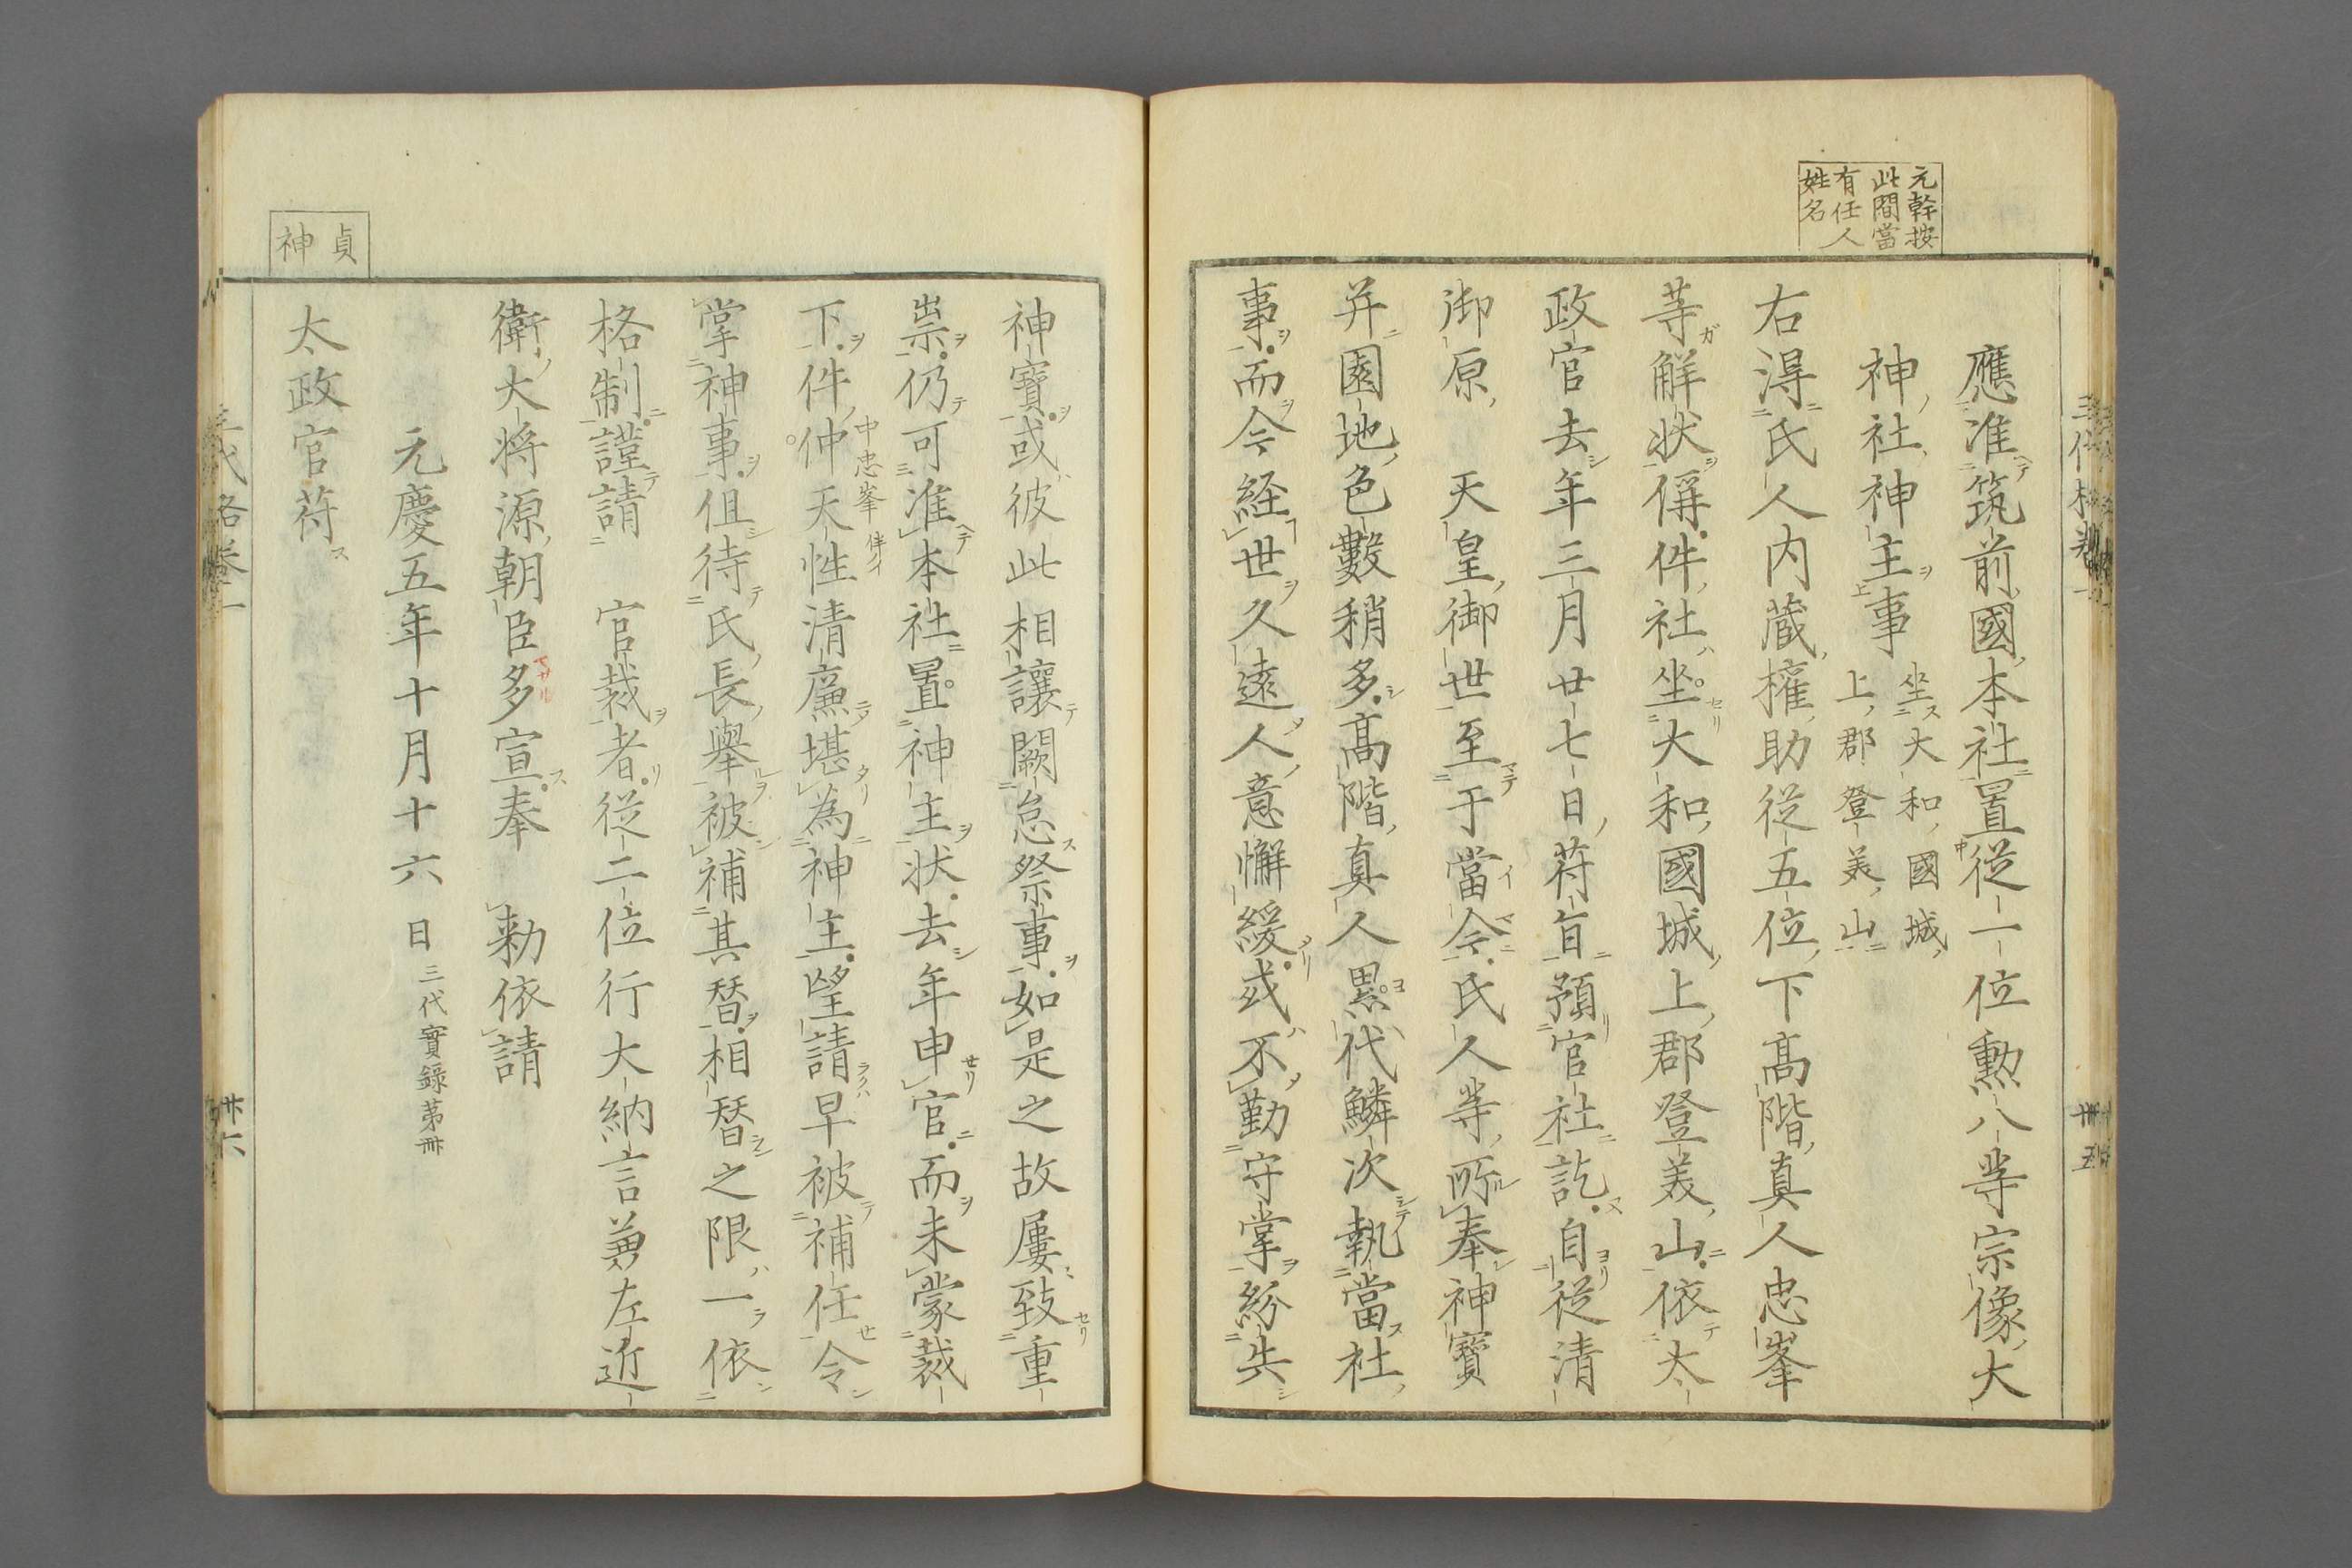 元幹按
此間當
有任人
姓名
應准筑前國本社置從一位勲八等宗像大
神社神主事
坐大和國城
上郡登美山
右得氏人内蔵權助從五位下髙階真人忠峯
等解状偁件社坐大和國城上郡登美山依太
政官去年三月廿七日符旨預官社訖自從清
御原 天皇御世至于當今氏人等所奉神寶
并園地色數稍多髙階真人累代鱗次執當社
事而今経世久遠人意懈緩或不勤守掌紛失
神寶或彼此相讓闕怠祭事如是之故屢致重
祟仍可准本社置神主状去年申官而未蒙裁
下件仲天性清廉堪為神主望請早被補任令
中忠峯
掌神事但待氏長舉被補其替相替之限一依
格制謹請 官裁者從二位行大納言兼左近
衛大将源朝臣多宣奉 勅依請
元慶五年十月十六日
三代實錄第卌
貞
神
太政官符